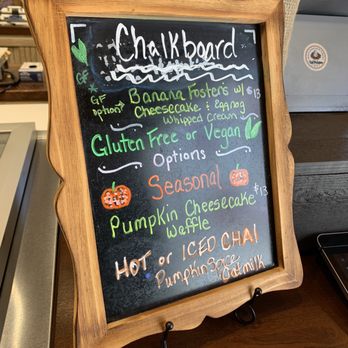 Chalkboard
GF
* GF option → Banana Fosters w/ $13
Cheesecake & Eggnog
Whipped Cream
Gluten Free or Vegan
Options
Seasonal
Pumpkin Cheesecake $13
Waffle
HOT or ICED CHAI
Pumpkin Spice
Oatmilk